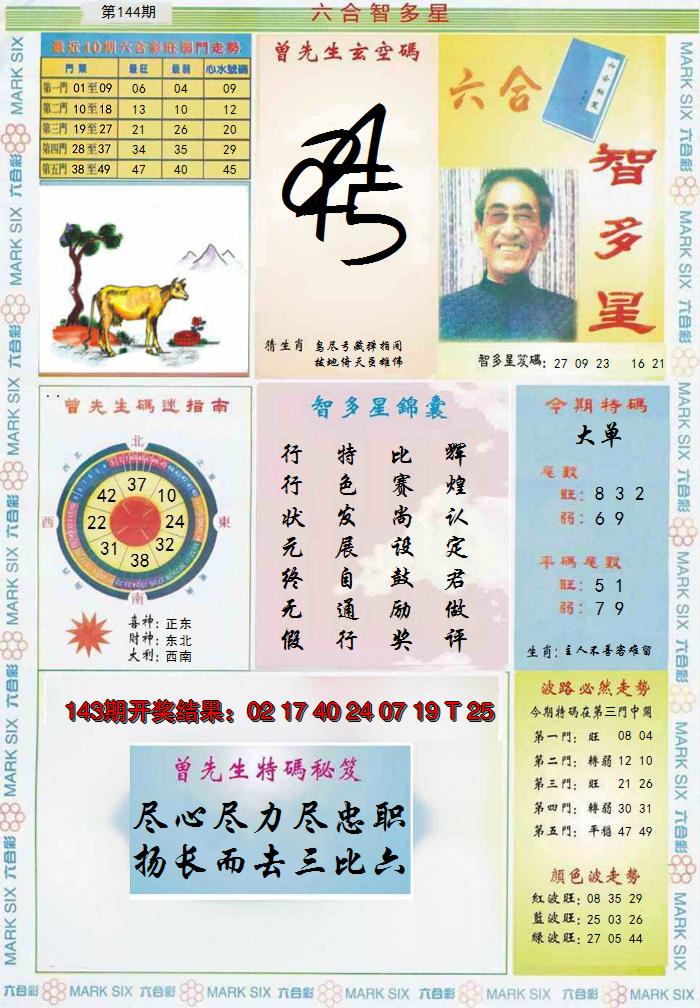 第144期
六合智多星
最近10期六合彩旺弱門走勢
門類 最旺 最弱 心水號碼
第一門 01至09 06 04 09
第二門 10至18 13 10 12
第三門 19至27 21 26 20
第四門 28至37 34 35 29
第五門 38至49 47 40 45
曾先生玄空碼
猜生肖 鸟尽弓藏弹指间
拔地倚天虽雄伟
六合
智多星
智多星笈碼: 27 09 23 16 21
曾先生碼迷指南
北
西
東
南
37
10
24
32
38
31
22
42
喜神: 正东
财神: 东北
大利: 西南
智多星錦囊
行行状元终无假
特色发展自通行
比赛尚设鼓励奖
辉煌认定君做评
今期特碼
大单
尾數
旺: 8 3 2
弱: 6 9
平碼尾數
旺: 5 1
弱: 7 9
生肖: 主人不善客难留
143期开奖结果: 02 17 40 24 07 19 T 25
曾先生特碼秘笈
尽心尽力尽忠职
扬长而去三比六
波路必然走势
今期特碼在第三門中開
第一門: 旺 08 04
第二門: 轉弱 12 10
第三門: 旺 21 26
第四門: 轉弱 30 31
第五門: 平穩 47 49
顏色波走勢
紅波旺: 08 35 29
藍波旺: 25 03 26
綠波旺: 27 05 44
MARK SIX 六合彩 MARK SIX 六合彩 MARK SIX 六合彩 MARK SIX 六合彩 MARK SIX 六合彩